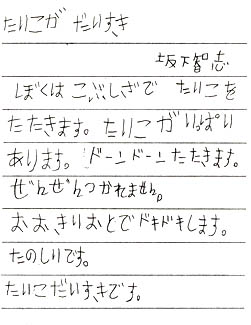 たいこが だいすき
坂下智志
ぼくは こぶしざで たいこを
たたきます。たいこが いっぱい
あります。ドーンドーンたたきます。
ぜんぜんつかれません。
おおきいおとでドキドキします。
たのしいです。
たいこだいすきです。